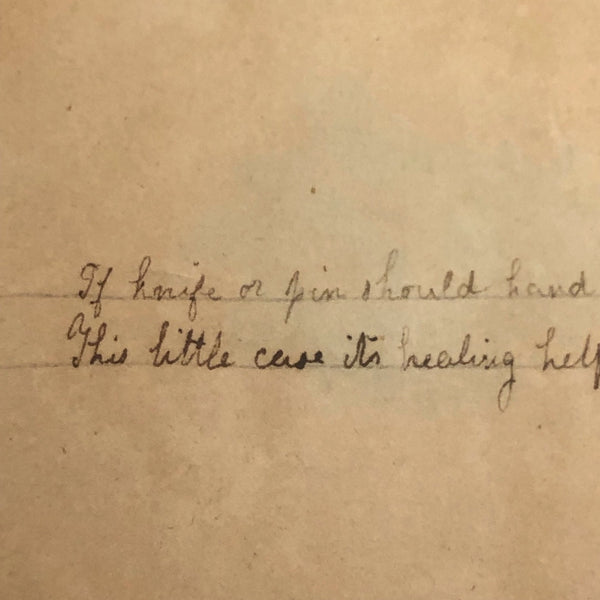 If knife or pin should hand
This little case its healing help